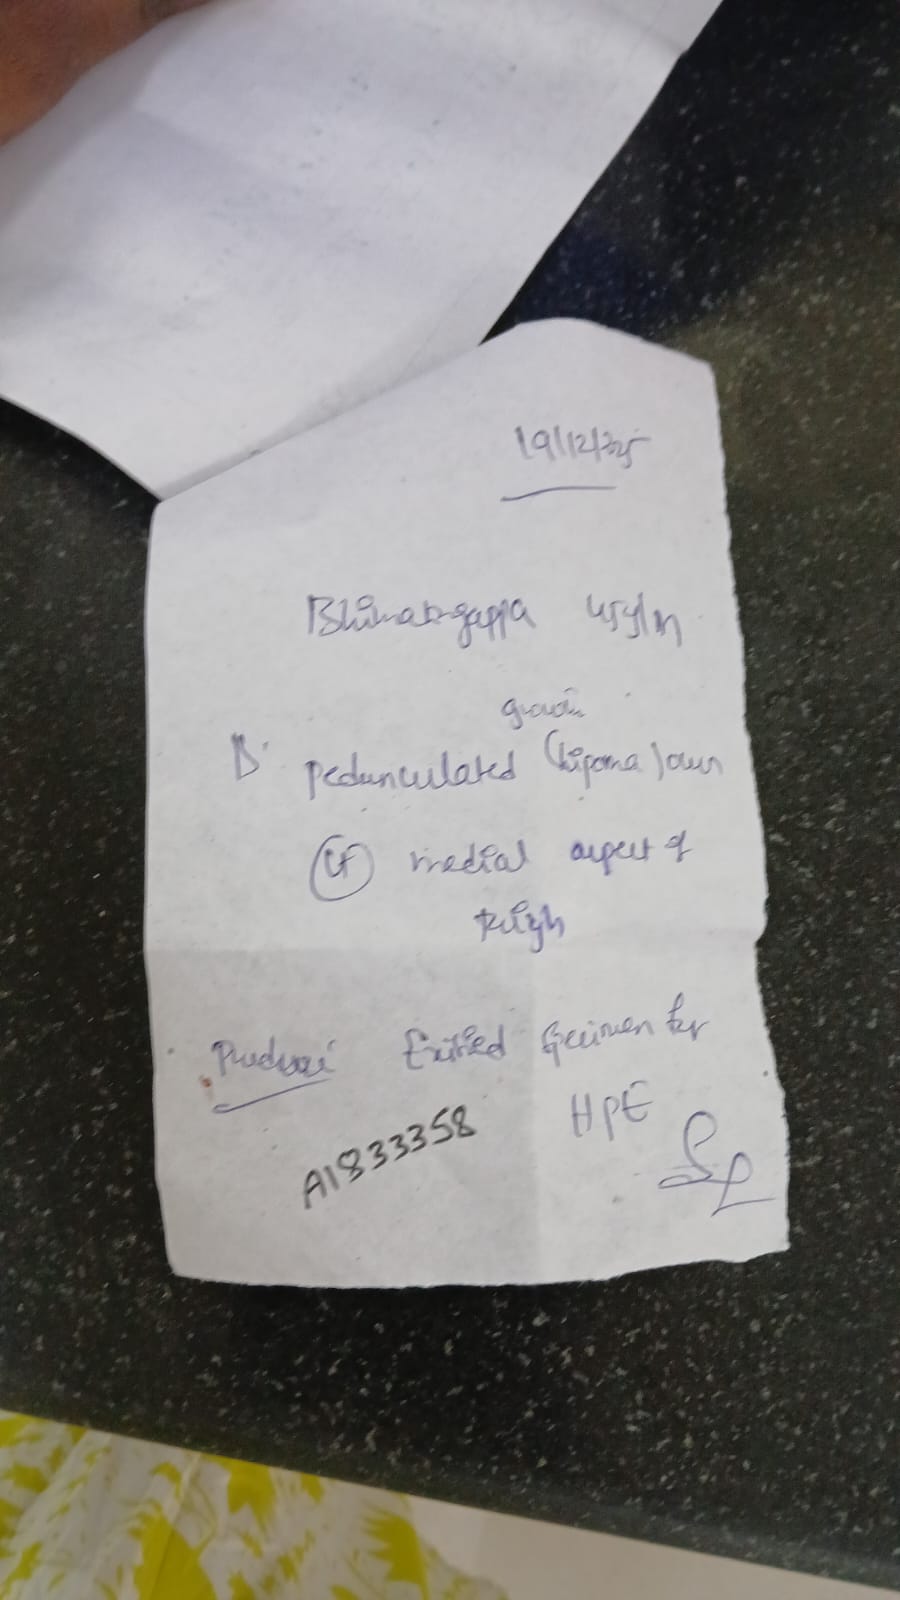 19/12/25
45y/M
growth
pedunculated (lipoma) over
Lt medial aspect of
thigh
Excised specimen for
HPE
A1833358